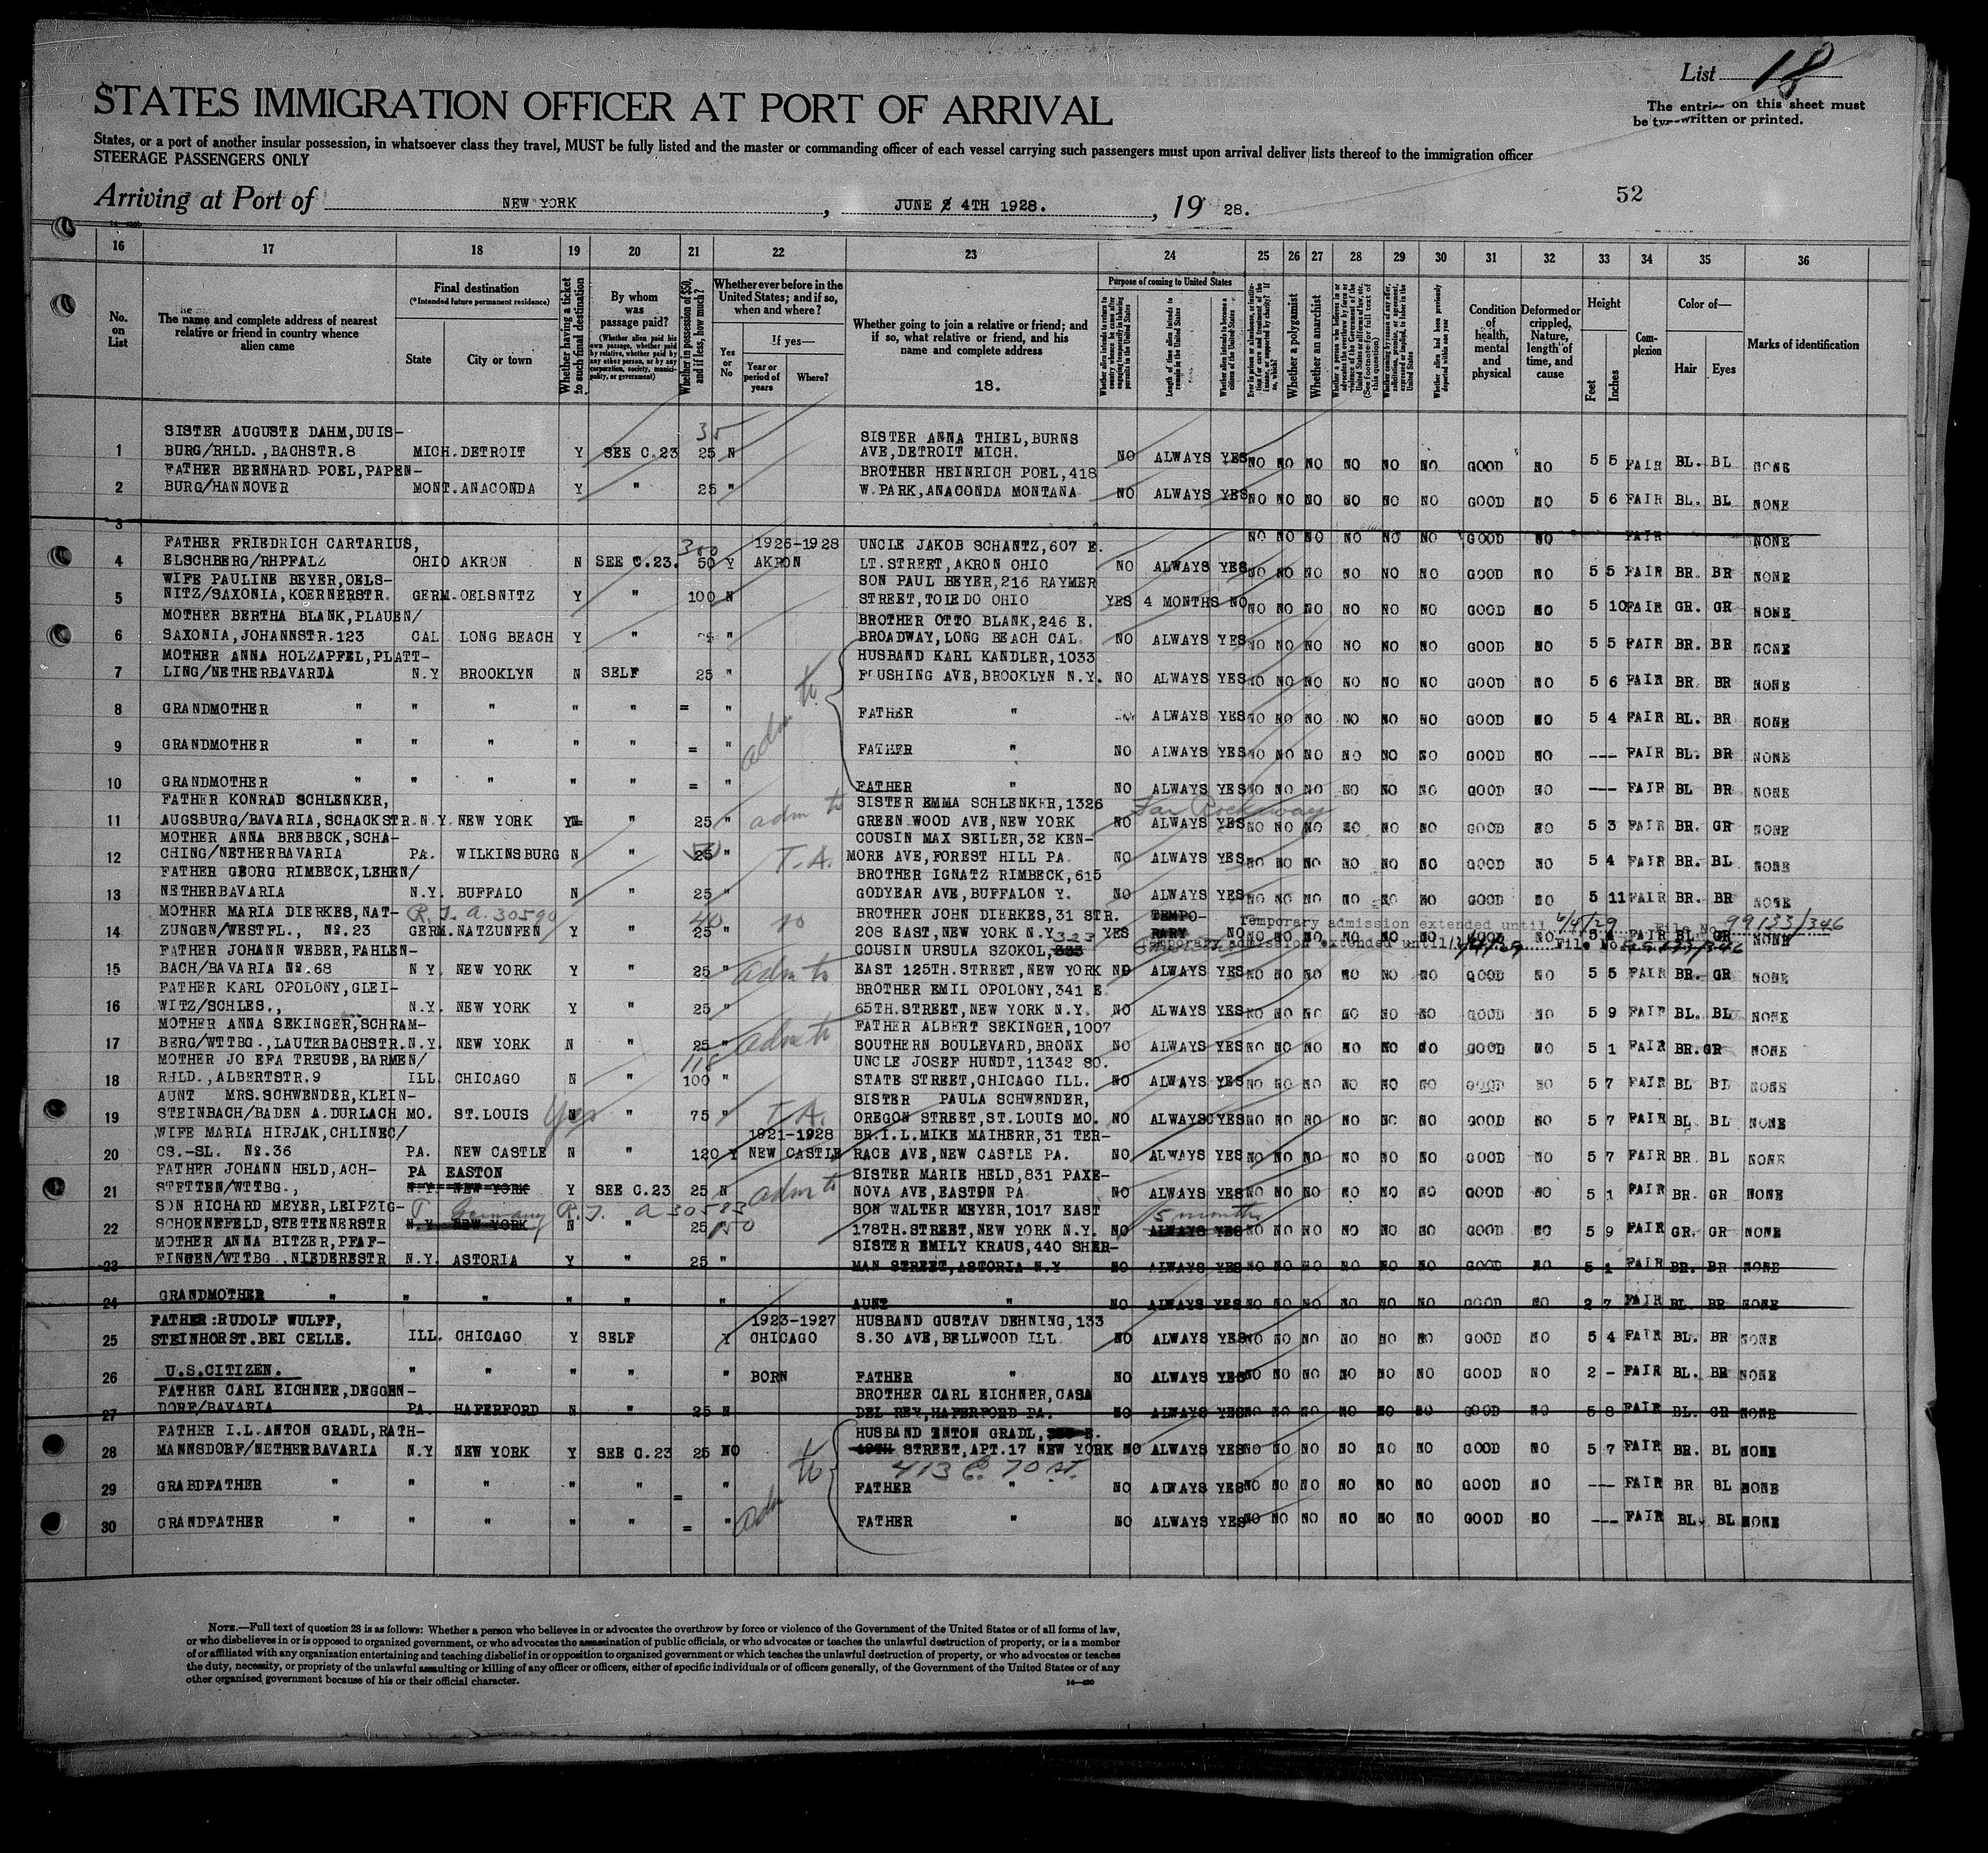 List 18
The entries on this sheet must
be typewritten or printed.
STATES IMMIGRATION OFFICER AT PORT OF ARRIVAL
States, or a port of another insular possession, in whatsoever class they travel, MUST be fully listed and the master or commanding officer of each vessel carrying such passengers must upon arrival deliver lists thereof to the immigration officer
STEERAGE PASSENGERS ONLY
Arriving at Port of NEW YORK, JUNE 4TH 1928., 19 28.
52
16 17 18 19 20 21 22 23 24 25 26 27 28 29 30 31 32 33 34 35 36
No. on List
The name and complete address of nearest relative or friend in country whence alien came
Final destination
(*Intended future permanent residence)
State City or town
Whether having a ticket to such final destination
By whom was passage paid?
(Whether alien paid his own passage, whether paid by relative, whether paid by any other person, or by any corporation, society, municipality, or government)
Whether in possession of $50, and if less, how much?
Whether ever before in the United States; and if so, when and where?
Yes or No
If yes—
Year or period of years
Where?
Whether going to join a relative or friend; and if so, what relative or friend, and his name and complete address
18.
Purpose of coming to United States
Length of time alien intends to remain in the United States
Whether a polygamist
Whether an anarchist
Condition of health, mental and physical
Deformed or crippled. Nature, length of time, and cause
Height
Feet Inches
Complexion
Color of—
Hair Eyes
Marks of identification
SISTER AUGUSTE DAHM,DUIS- 35 SISTER ANNA THIEL,BURNS
1 BURG/RHLD.,BACHSTR.8 MICH.DETROIT Y SEE C.23 25 N AVE,DETROIT MICH. NO ALWAYS YES NO NO NO NO NO NO GOOD NO 5 5 FAIR BL. BL NONE
FATHER BERNHARD POEL,PAPEN- BROTHER HEINRICH POEL,418
2 BURG/HANNOVER MONT.ANACONDA Y " 25 " W.PARK,ANACONDA MONTANA NO ALWAYS YES NO NO NO NO NO NO GOOD NO 5 6 FAIR BL. BL NONE
3 NO NO NO NO NO NO GOOD NO FAIR NONE
FATHER FRIEDRICH CARTARIUS, 300 1926-1928 UNCLE JAKOB SCHANTZ,607 E.
4 ELSCHBERG/RHPFALZ OHIO AKRON N SEE C.23. 50 Y AKRON LT.STREET,AKRON OHIO NO ALWAYS YES NO NO NO NO NO NO GOOD NO 5 5 FAIR BR. BR NONE
WIFE PAULINE BEYER,OELS- SON PAUL BEYER,216 RAYMER
5 NITZ/SAXONIA,KOERNERSTR. GERM.OELSNITZ Y " 100 N STREET,TOLEDO OHIO YES 4 MONTHS NO NO NO NO NO NO NO GOOD NO 5 10 FAIR GR. GR NONE
MOTHER BERTHA BLANK,PLAUEN/ BROTHER OTTO BLANK,246 E.
6 SAXONIA,JOHANNSTR.123 CAL LONG BEACH Y " " BROADWAY,LONG BEACH CAL. NO ALWAYS YES NO NO NO NO NO NO GOOD NO 5 5 FAIR BR. BR NONE
MOTHER ANNA HOLZAPFEL,PLATT- HUSBAND KARL KANDLER,1033
7 LING/NETHERBAVARDA N.Y BROOKLYN N SELF 25 " FLUSHING AVE,BROOKLYN N.Y. NO ALWAYS YES NO NO NO NO NO NO GOOD NO 5 6 FAIR BR BR NONE
adm to
8 GRANDMOTHER " " " " " = " FATHER " ALWAYS YES NO NO NO NO NO NO GOOD NO 5 4 FAIR BL. BR NONE
9 GRANDMOTHER " " " " " = " FATHER " NO ALWAYS YES NO NO NO NO NO NO GOOD NO --- FAIR BL. BR NONE
10 GRANDMOTHER " " " " " = " FATHER " NO ALWAYS YES NO NO NO NO NO NO GOOD NO --- FAIR BL BR NONE
FATHER KONRAD SCHLENKER, adm to SISTER EMMA SCHLENKER,1326 Far Rockaway
11 AUGSBURG/BAVARIA,SCHACKSTR.N.Y.NEW YORK Y " 25 " GREEN WOOD AVE,NEW YORK NO ALWAYS YES NO NO NO NO NO NO GOOD NO 5 3 FAIR BR. GR NONE
MOTHER ANNA BREBECK,SCHA- COUSIN MAX SEILER,32 KEN-
12 CHING/NETHERBAVARIA PA. WILKINSBURG N " 25 " T.A. MORE AVE,FOREST HILL PA. NO ALWAYS YES NO NO NO NO NO NO GOOD NO 5 4 FAIR BR. BL NONE
FATHER GEORG RIMBECK,LEHEN/ BROTHER IGNATZ RIMBECK,615
13 NETHERBAVARIA N.Y. BUFFALO N " 25 " GODYEAR AVE,BUFFALON Y. NO ALWAYS YES NO NO NO NO NO NO GOOD NO 5 11 FAIR BR. BR NONE
MOTHER MARIA DIERKES,NAT- R.J.A.30590 40 BROTHER JOHN DIERKES,31 STR. TEMPO- Temporary admission extended until 6/4/29 File No 99133/346
14 ZUNGEN/WESTFL., No.23 GERM.NATZUNFEN Y " 25 " 208 EAST,NEW YORK N.Y. YES RARY NO NO NO NO NO NO NO GOOD NO 5 4 FAIR BL. GR NONE
Temporary admission extended until File No
FATHER JOHANN WEBER,FAHLEN- COUSIN URSULA SZOKOL, 323
15 BACH/BAVARIA No.68 N Y. NEW YORK Y " 25 " adm to EAST 125TH.STREET,NEW YORK NO ALWAYS YES NO NO NO NO NO NO GOOD NO 5 5 FAIR BR. GR NONE
FATHER KARL OPOLONY,GLEI- BROTHER EMIL OPOLONY,341 E.
16 WITZ/SCHLES., N.Y. NEW YORK Y " 25 " 65TH.STREET,NEW YORK N.Y. NO ALWAYS YES NO NO NO NO NO NO GOOD NO 5 9 FAIR BL. BL NONE
MOTHER ANNA SEKINGER,SCHRAM- FATHER ALBERT SEKINGER,1007
17 BERG/WTTBG.,LAUTERBACHSTR.N.Y. NEW YORK N " 25 " adm to SOUTHERN BOULEVARD,BRONX NO ALWAYS YES NO NO NO NO NO NO GOOD NO 5 1 FAIR BR.GR NONE
MOTHER JO EFA TREUDE,BARMEN/ 118 UNCLE JOSEF HUNDT,11342 SO.
18 RHLD.,ALBERTSTR.9 ILL. CHICAGO N " 100 " STATE STREET,CHICAGO ILL. NO ALWAYS YES NO NO NO NO NO NO GOOD NO 5 7 FAIR BL BL NONE
AUNT MRS.SCHWENDER,KLEIN- SISTER PAULA SCHWENDER,
19 STEINBACH/BADEN A.DURLACH MO. ST.LOUIS Yes N " 75 " T.A. OREGON STREET,ST.LOUIS MO. NO ALWAYS YES NO NO NO NO NO NO GOOD NO 5 7 FAIR BL BL NONE
WIFE MARIA HIRJAK,CHLINEC/ 1921-1928 BR.I.L.MIKE MAIHERR,31 TER-
20 CS.-SL. No.36 PA. NEW CASTLE N " 120 Y NEW CASTLE RACE AVE,NEW CASTLE PA. NO ALWAYS YES NO NO NO NO NO NO GOOD NO 5 7 FAIR BR BL NONE
FATHER JOHANN HELD,ACH- PA EASTON SISTER MARIE HELD,831 PAXE-
21 STETTEN/WTTBG., N.Y. NEW YORK Y SEE C.23 25 N adm to NOVA AVE,EASTON PA NO ALWAYS YES NO NO NO NO NO NO GOOD NO 5 1 FAIR BR. GR NONE
SON RICHARD MEYER,LEIPZIG- Germany R.J. A30583 SON WALTER MEYER,1017 EAST 5 months
22 SCHOENEFELD,STETTENERSTR N.Y. NEW YORK N " 25 150 178TH.STREET,NEW YORK N.Y. NO ALWAYS YES NO NO NO NO NO NO GOOD NO 5 9 FAIR GR. GR NONE
MOTHER ANNA BITZER,PFAF- SISTER EMILY KRAUS,440 SHER-
23 FINGEN/WTTBG.,NIEDERESTR N.Y. ASTORIA Y " 25 " MAN STREET,ASTORIA N.Y NO ALWAYS YES NO NO NO NO NO NO GOOD NO 5 1 FAIR BR. BR NONE
24 GRANDMOTHER " " " " " " AUNT " NO ALWAYS YES NO NO NO NO NO NO GOOD NO 2 7 FAIR BL. BR NONE
FATHER:RUDOLF WULFF, 1923-1927 HUSBAND GUSTAV DEHNING,133
25 STEINHORST.BEI CELLE. ILL. CHICAGO Y SELF Y CHICAGO S.30 AVE,BELLWOOD ILL NO ALWAYS YES NO NO NO NO NO NO GOOD NO 5 4 FAIR BL. BR NONE
26 U.S.CITIZEN. " " " " " BORN FATHER " NO ALWAYS YES NO NO NO NO NO NO GOOD NO 2 - FAIR BL. BR NONE
FATHER CARL EICHNER,DEGGEN- BROTHER CARL EICHNER,CASA
27 DORF/BAVARIA PA. HAFERFORD N " 25 N DEL REY,HAFERFORD PA. NO ALWAYS YES NO NO NO NO NO NO GOOD NO 5 8 FAIR BL. GR NONE
FATHER I.L.ANTON GRADL,RATH- HUSBAND ENTON GRADL, E.
28 MANNSDORF/NETHERBAVARIA N.Y NEW YORK Y SEE C.23 25 NO 49TH STREET,APT.17 NEW YORK NO ALWAYS YES NO NO NO NO NO NO GOOD NO 5 7 FAIR BR. BL NONE
adm to 413 E. 70 st.
29 GRABDFATHER " " " " " = " FATHER " NO ALWAYS YES NO NO NO NO NO NO GOOD NO --- FAIR BR BL NONE
30 GRANDFATHER " " " " " = " FATHER " NO ALWAYS YES NO NO NO NO NO NO GOOD NO --- FAIR BL. BL NONE
NOTE.—Full text of question 28 is as follows: Whether a person who believes in or advocates the overthrow by force or violence of the Government of the United States or of all forms of law,
or who disbelieves in or is opposed to organized government, or who advocates the assassination of public officials, or who advocates or teaches the unlawful destruction of property, or is a member
of or affiliated with any organization entertaining and teaching disbelief in or opposition to organized government or which teaches the unlawful destruction of property, or who advocates or teaches
the duty, necessity, or propriety of the unlawful assaulting or killing of any officer or officers, either of specific individuals or of officers generally, of the Government of the United States or of any
other organized government because of his or their official character.
14—480